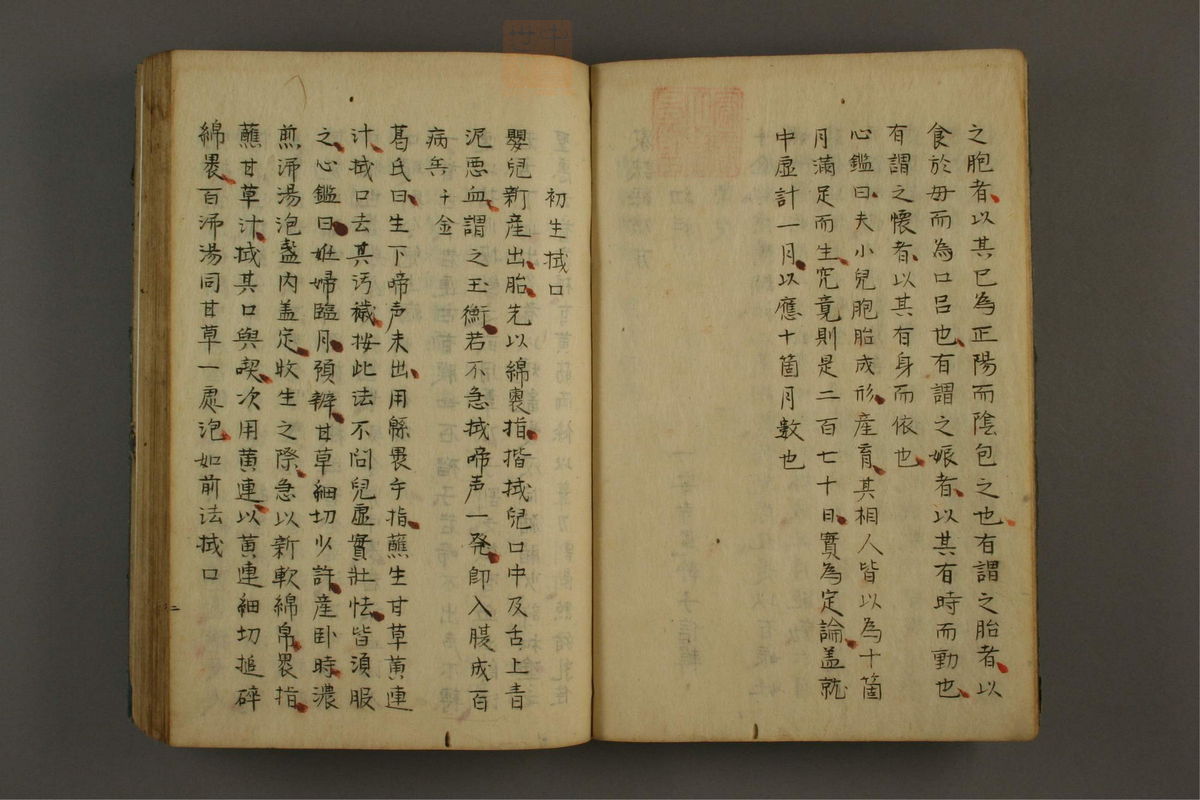 之胞者以其已為正陽而陰包之也有謂之胎者以
食於母而為口呂也有謂之娠者以其有時而動也
有謂之懷者以其有身而依也
心鑑曰夫小兒胞胎成形產育其相人皆以為十箇
月滿足而生究竟則是二百七十日實為定論盖就
中虛計一月以應十箇月數也
初生拭口
嬰兒新産出胎先以綿裹指揩拭兒口中及舌上青
泥悪血謂之玉衡若不急拭啼声一発即入腸成百
病矣 千金
葛氏曰生下啼声未出用緜裹手指蘸生甘草黄連
汁拭口去其汚穢按此法不問兒虛實壯怯皆須服
之心鑑曰姙婦臨月預辨甘草細切少許産卧時濃
煎沸湯泡盞内盖定收生之際急以新軟綿帛裹指
蘸甘草汁拭其口與喫次用黄連以黄連細切搥碎
綿裹百沸湯同甘草一處泡如前法拭口